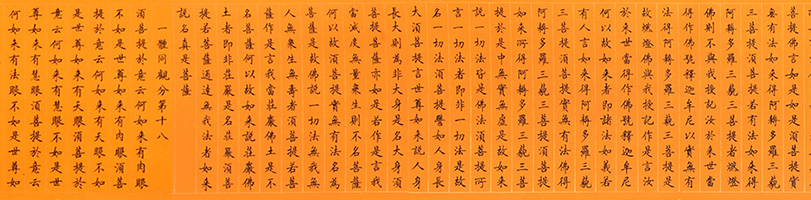 菩提佛言如是如是須菩提實
無有法如來得阿耨多羅三藐
三菩提須菩提若有法如來得
阿耨多羅三藐三菩提者燃燈
佛則不與我授記汝於來世當
得作佛號釋迦牟尼以實無有
法得阿耨多羅三藐三菩提是
故燃燈佛與我授記作是言汝
於來世當得作佛號釋迦牟尼
何以故如來者即諸法如義若
有人言如來得阿耨多羅三藐
三菩提須菩提實無有法佛得
阿耨多羅三藐三菩提須菩提
如來所得阿耨多羅三藐三菩
提於是中無實無虛是故如來
說一切法皆是佛法須菩提所
言一切法者即非一切法是故
名一切法須菩提譬如人身長
大須菩提言世尊如來說人身
長大則為非大身是名大身須
菩提菩薩亦如是若作是言我
當滅度無量眾生則不名菩薩
何以故須菩提實無有法名為
菩薩是故佛說一切法無我無
人無眾生無壽者須菩提若菩
薩作是言我當莊嚴佛土是不
名菩薩何以故如來說莊嚴佛
土者即非莊嚴是名莊嚴須菩
提若菩薩通達無我法者如來
說名真是菩薩
一體同觀分第十八
須菩提於意云何如來有肉眼
不如是世尊如來有肉眼須菩
提於意云何如來有天眼不如
是世尊如來有天眼須菩提於
意云何如來有慧眼不如是世
尊如來有慧眼須菩提於意云
何如來有法眼不如是世尊如